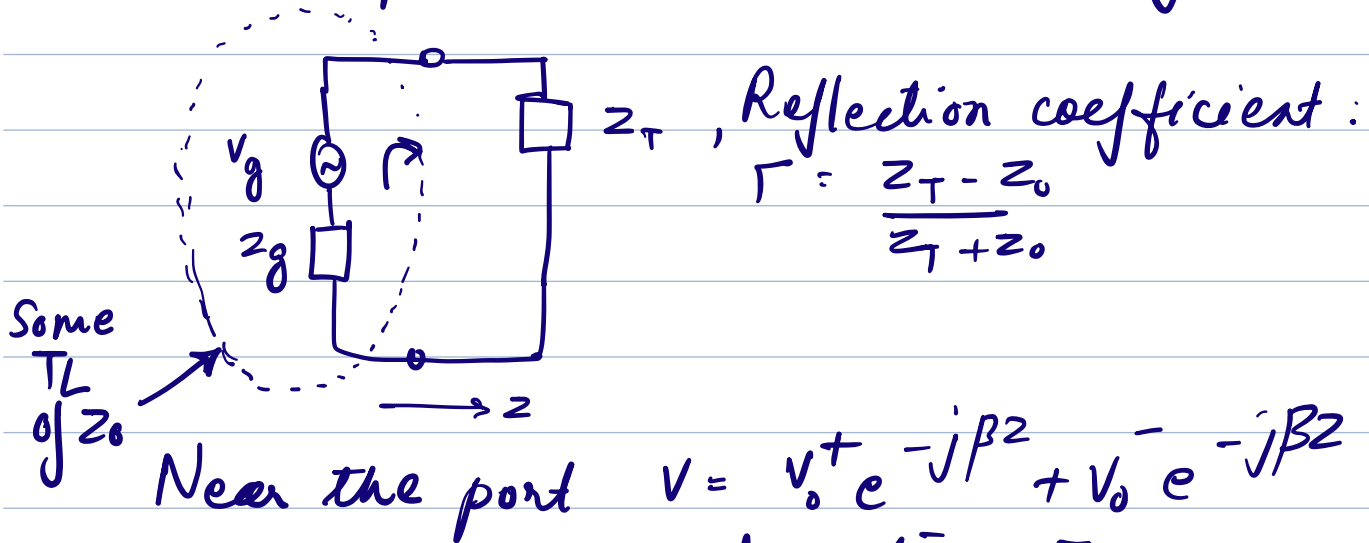 V_g
Z_g
Z_T , Reflection coefficient :
Γ = (Z_T - Z_0) / (Z_T + Z_0)
Some
TL
of Z_0
→ Z
Near the port V = V_0^+ e^{-jβz} + V_0^- e^{-jβz}